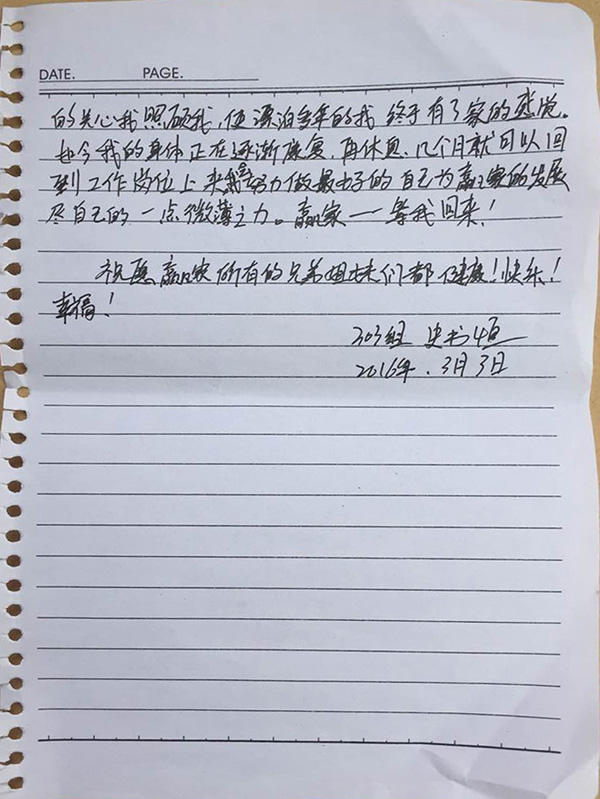 DATE. PAGE.
的关心我照顾我,使漂泊多年的我终于有了家的感觉。
如今我的身体正在逐渐康复,再休息几个月就可以回
到工作岗位上来,我会努力做最好的自己为赢家的发展
尽自己的一点微薄之力。赢家一等我回来!
祝愿赢家所有的兄弟姐妹们都健康!快乐!
幸福!
303组 史书
2016年.3月3日